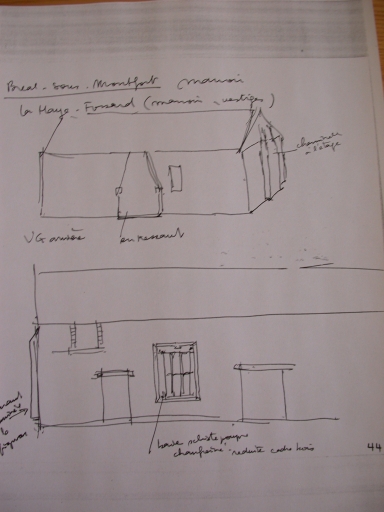 Bréal-Sous-Montfort (manoir
La Haye-Forsard (manoir, vestiges)
cheminée
à l'étage
VG arrière en ressaut
baie schiste pourpre
chanfreinée - réduite cadre bois
44